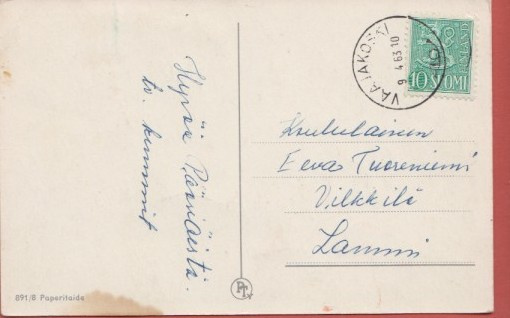 Hyvää Pääsiäistä.
tv. kummit
VAAJAKOSKI
9 4 63 10
10 SUOMI
Koululainen
Eeva Tuoreniemi
Vilkkilä
Lammi
891/8 Paperitaide
PT